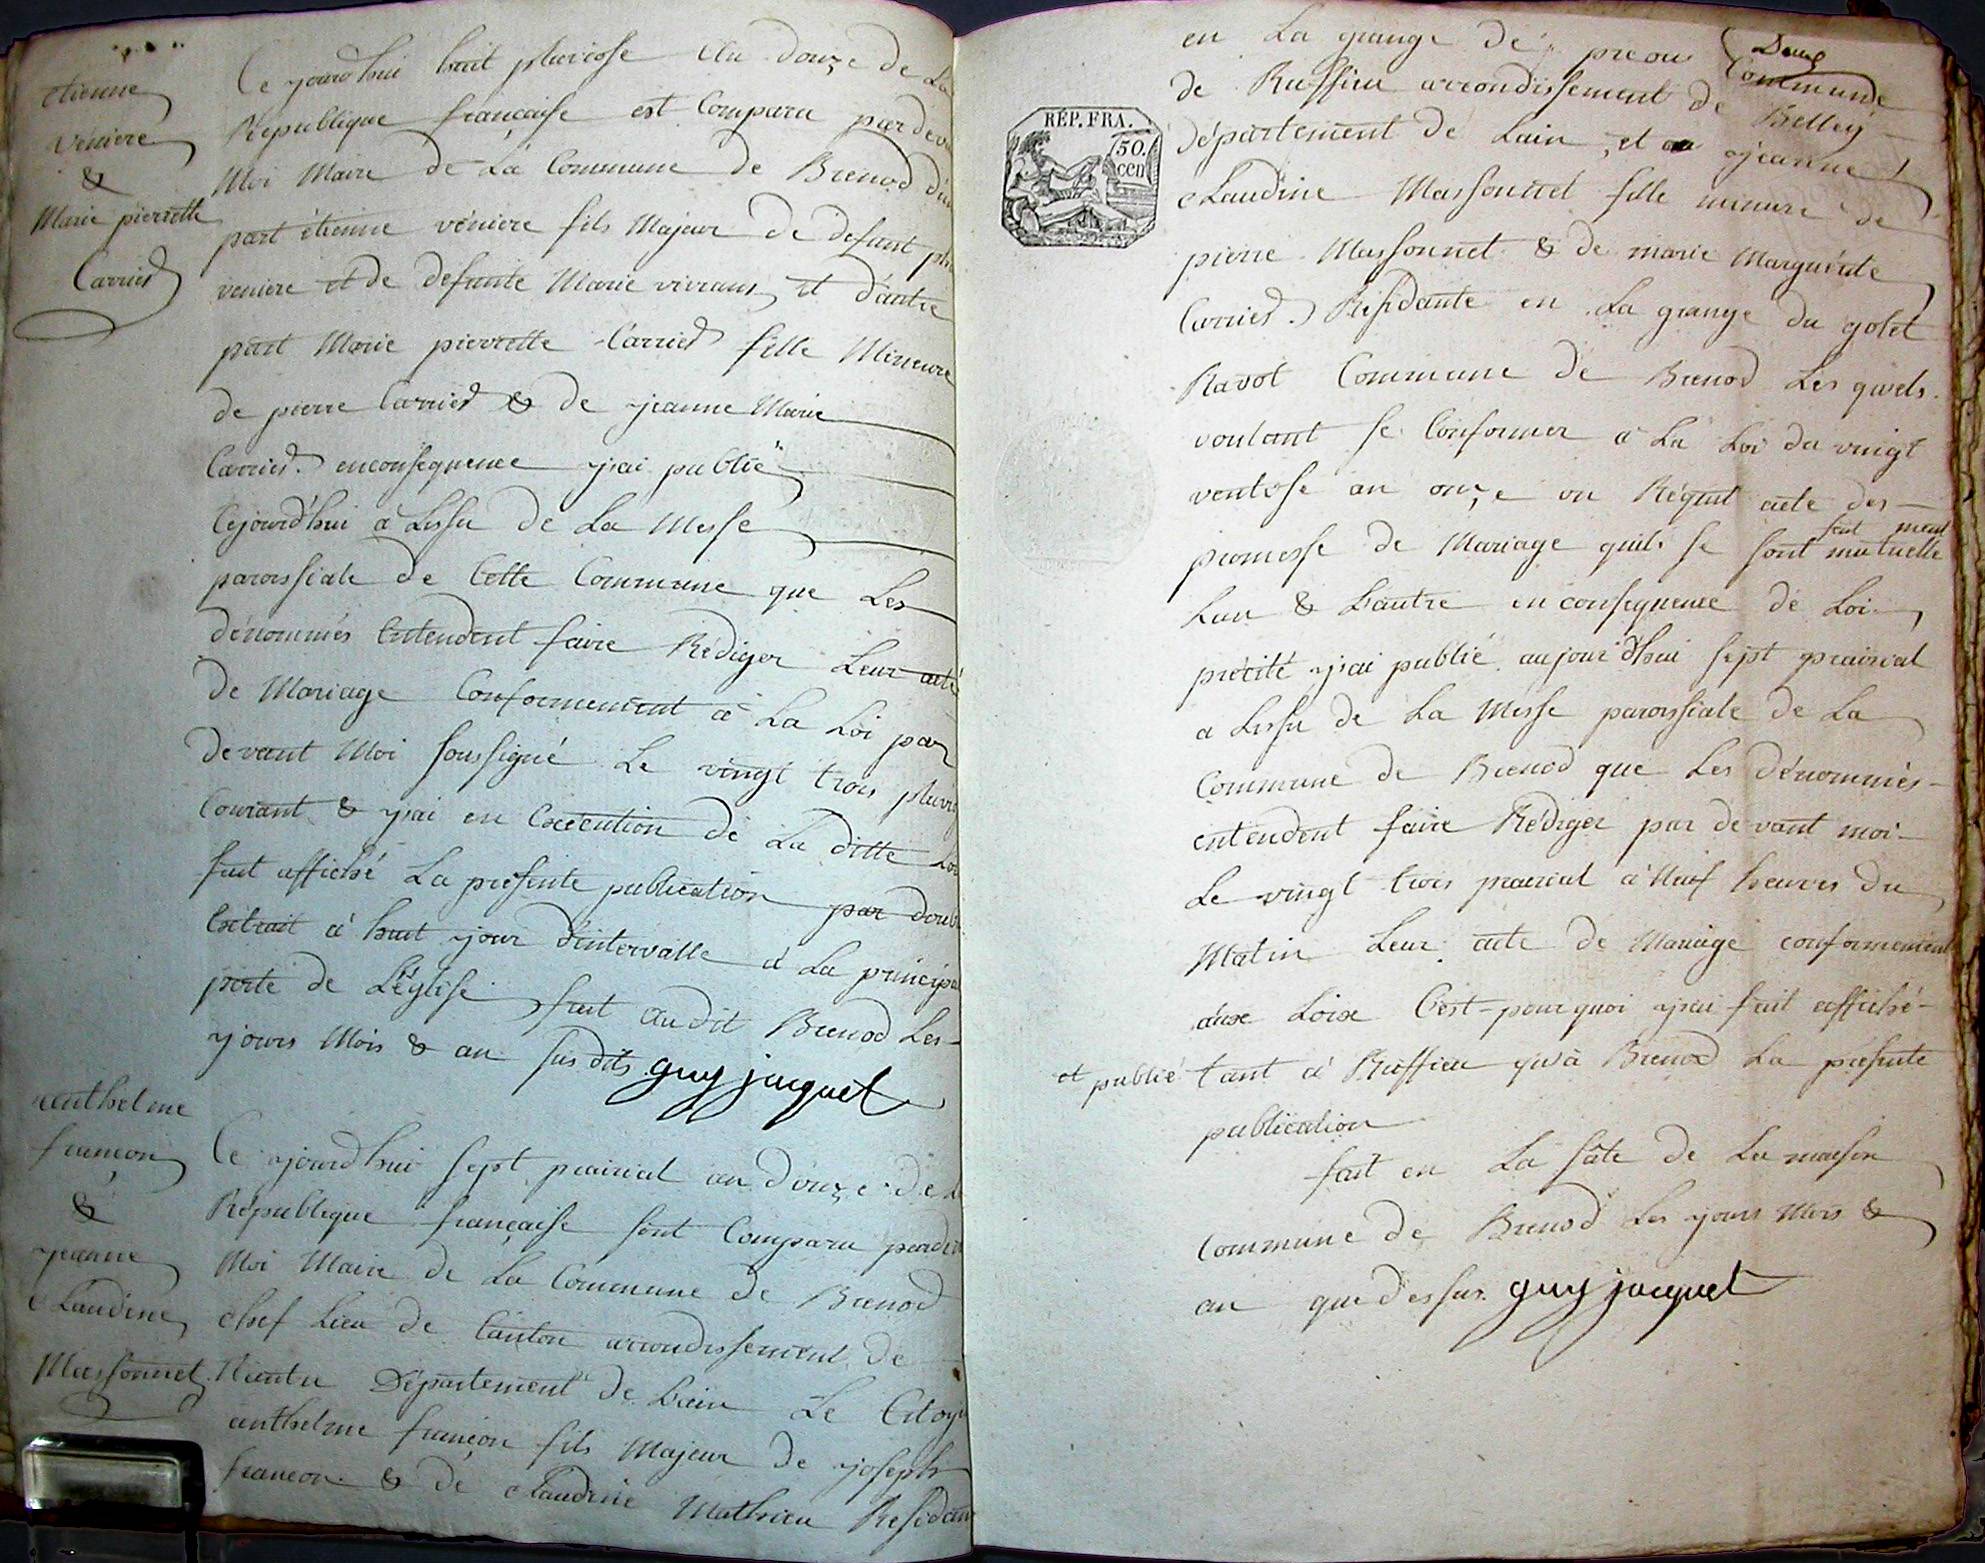 etienne
véniere
&
Marie pierrette
Carrier
Ce jourd'hui huit pluviose an douze de La
République française est Comparu par dev
Moi Maire de La Commune de Brenod d'u
part étienne véniere fils Majeur de defunt
veniere et de defunte Marie vivians, et d'autre
part Marie pierrette Carrier fille Mineure
de pierre Carrier & de jeanne Marie
Carrier. enconsequence j'ai publié
Cejourd'hui a Lissu de La Messe
paroissiale de Cette Commune que Les
dénommés Entendent faire Rédiger Leur acte
de Mariage Conformement à La Loi par
devant Moi soussigné Le vingt trois pluvio
Courant & j'ai en Execution de La ditte Loi
fait affiché La presente publication par doub
Extrait à huit jour d'intervalle à La princip
porte de L'église fait audit Brenod Les
jours Mois & an susdits guy jacquet
anthelme
françon
&
jeanne
Claudine
Massonnet
Ce jourd'hui sept prairial an douze de L
République française sont Comparu pardev
Moi Maire de La Commune de Brenod
chef Lieu de Canton arrondissement de
Nantua Département de Lain Le Citoy
anthelme françon fils Majeur de joseph
francon & de Claudine Mathieu Residan
en La grange de preou Deuf
Commune
de Ruffieu arrondissement de Belley
RÉP. FRA.
50.
cen
département de Lain, et jeanne
Claudine Massonnet fille mineure de
pierre Massonnet & de marie Marguérite
Carrier. Residante en La grange du golet
Ravot Commune de Brenod Les quels
voulant se Conformer à La Loi du vingt
ventose an onze on Réquit acte des
promesse de Mariage quils se sont mutuelle
fait ment
Lun & Lautre en consequence de Loi
précité j'ai publié aujourd'hui sept prairial
a Lissu de La Messe paroissiale de La
Commune de Brenod que Les dénommés
entendent faire Rédiger par devant moi
Le vingt trois prairial à Neuf heures du
Matin Leur acte de Mariage conformement
aux Loix C'est-pourquoi j'ai fait affiché
et publié tant à Ruffieu qu'à Brenod La presente
publication
fait en La sale de La maison
Commune de Brenod Les jours Mois &
an que dessus. guy jacquet